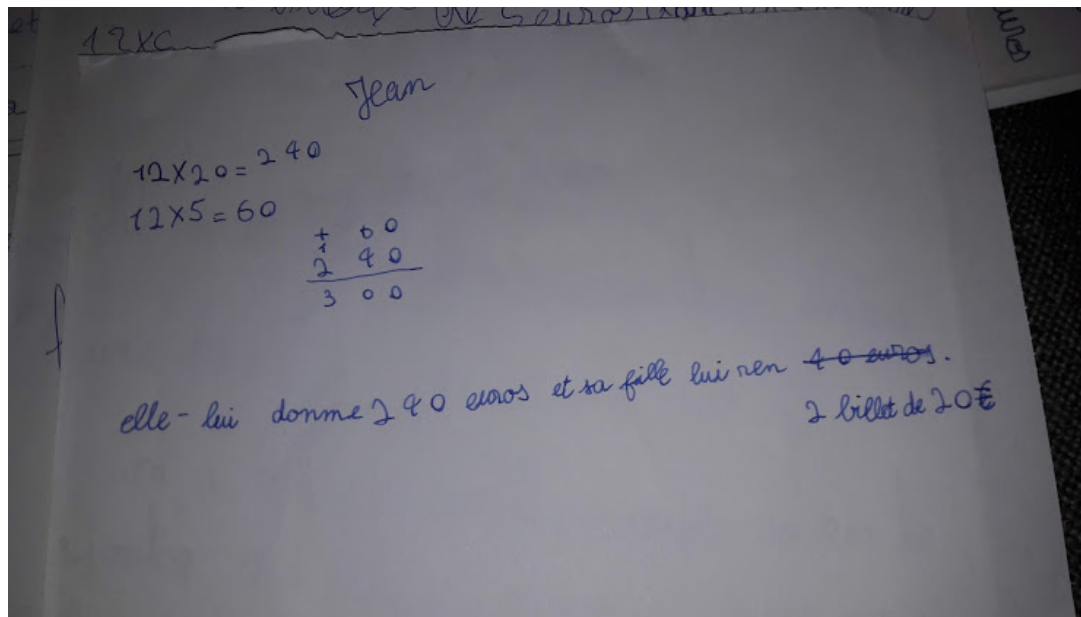 12xc
Jean
12x20=240
12x5=60
+ 60
1
2 40
3 00
elle-lui donme 240 euros et sa fille lui ren 40 euros.
2 billet de 20€